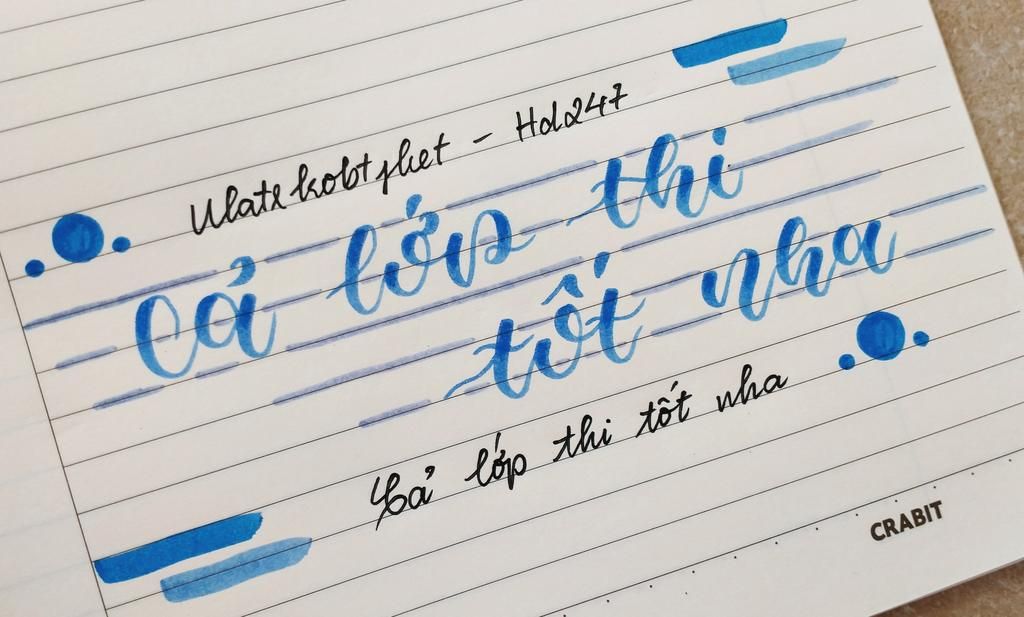 Ulatekobtphet - Hd247
Cả lớp thi
tốt nha
Cả lớp thi tốt nha
CRABIT